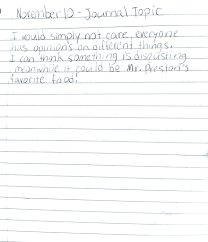 November 10 - Journal Topic
I would simply not care, everyone
has opinions on different things.
I can think something is disgusting
meanwhile it could be Mr. Preston's
favorite food.